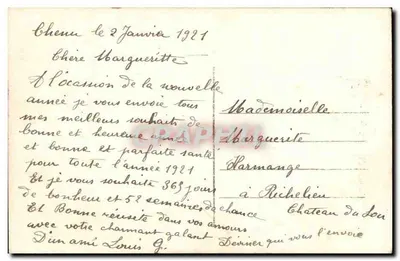 Chenu le 2 Janvier 1921
Chère Margueritte
A l'occasion de la nouvelle
année je vous envoie tous
mes meilleurs souhaits de
bonne et heureuse
et bonne et parfaite santé
pour toute l'année 1921
Et je vous souhaite 365 jours
de bonheur et 52 semaines de chance
Et Bonne réussite dans vos amours
avec votre charmant galant
D'un ami Louis G.
Mademoiselle
Marguerite
Harmange
à Richelieu
Chateau du Lou
Deviner qui vous l'envoie